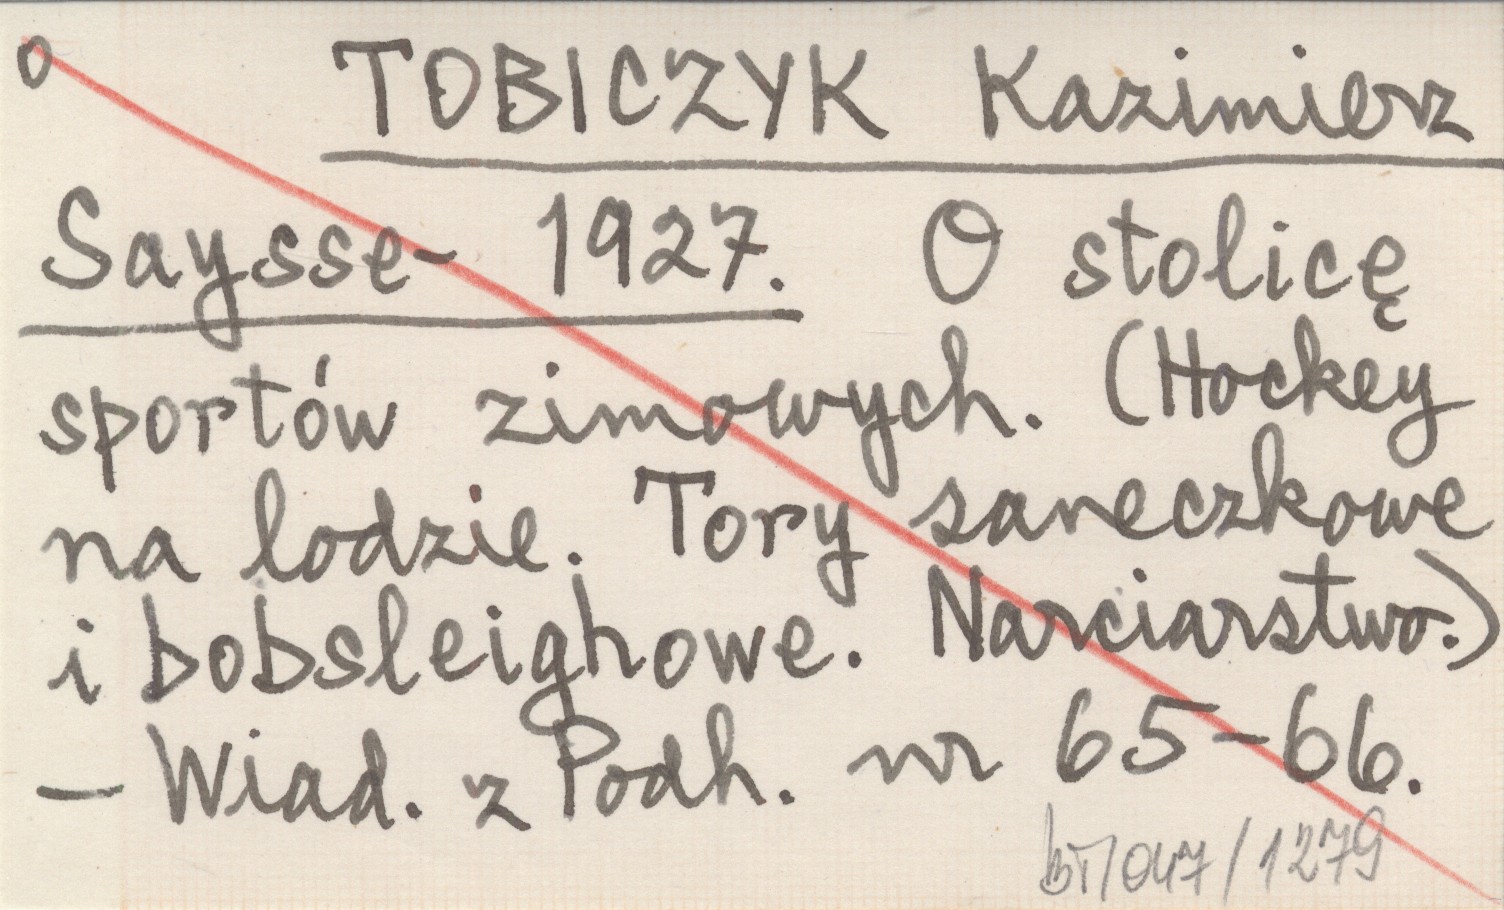 o TOBICZYK Kazimierz
Saysse- 1927. O stolicę
sportów zimowych. (Hockey
na lodzie. Tory saneczkowe
i bobsleighowe. Narciarstwo.)
– Wiad. z Podh. nr 65–66.
BT/047/1279